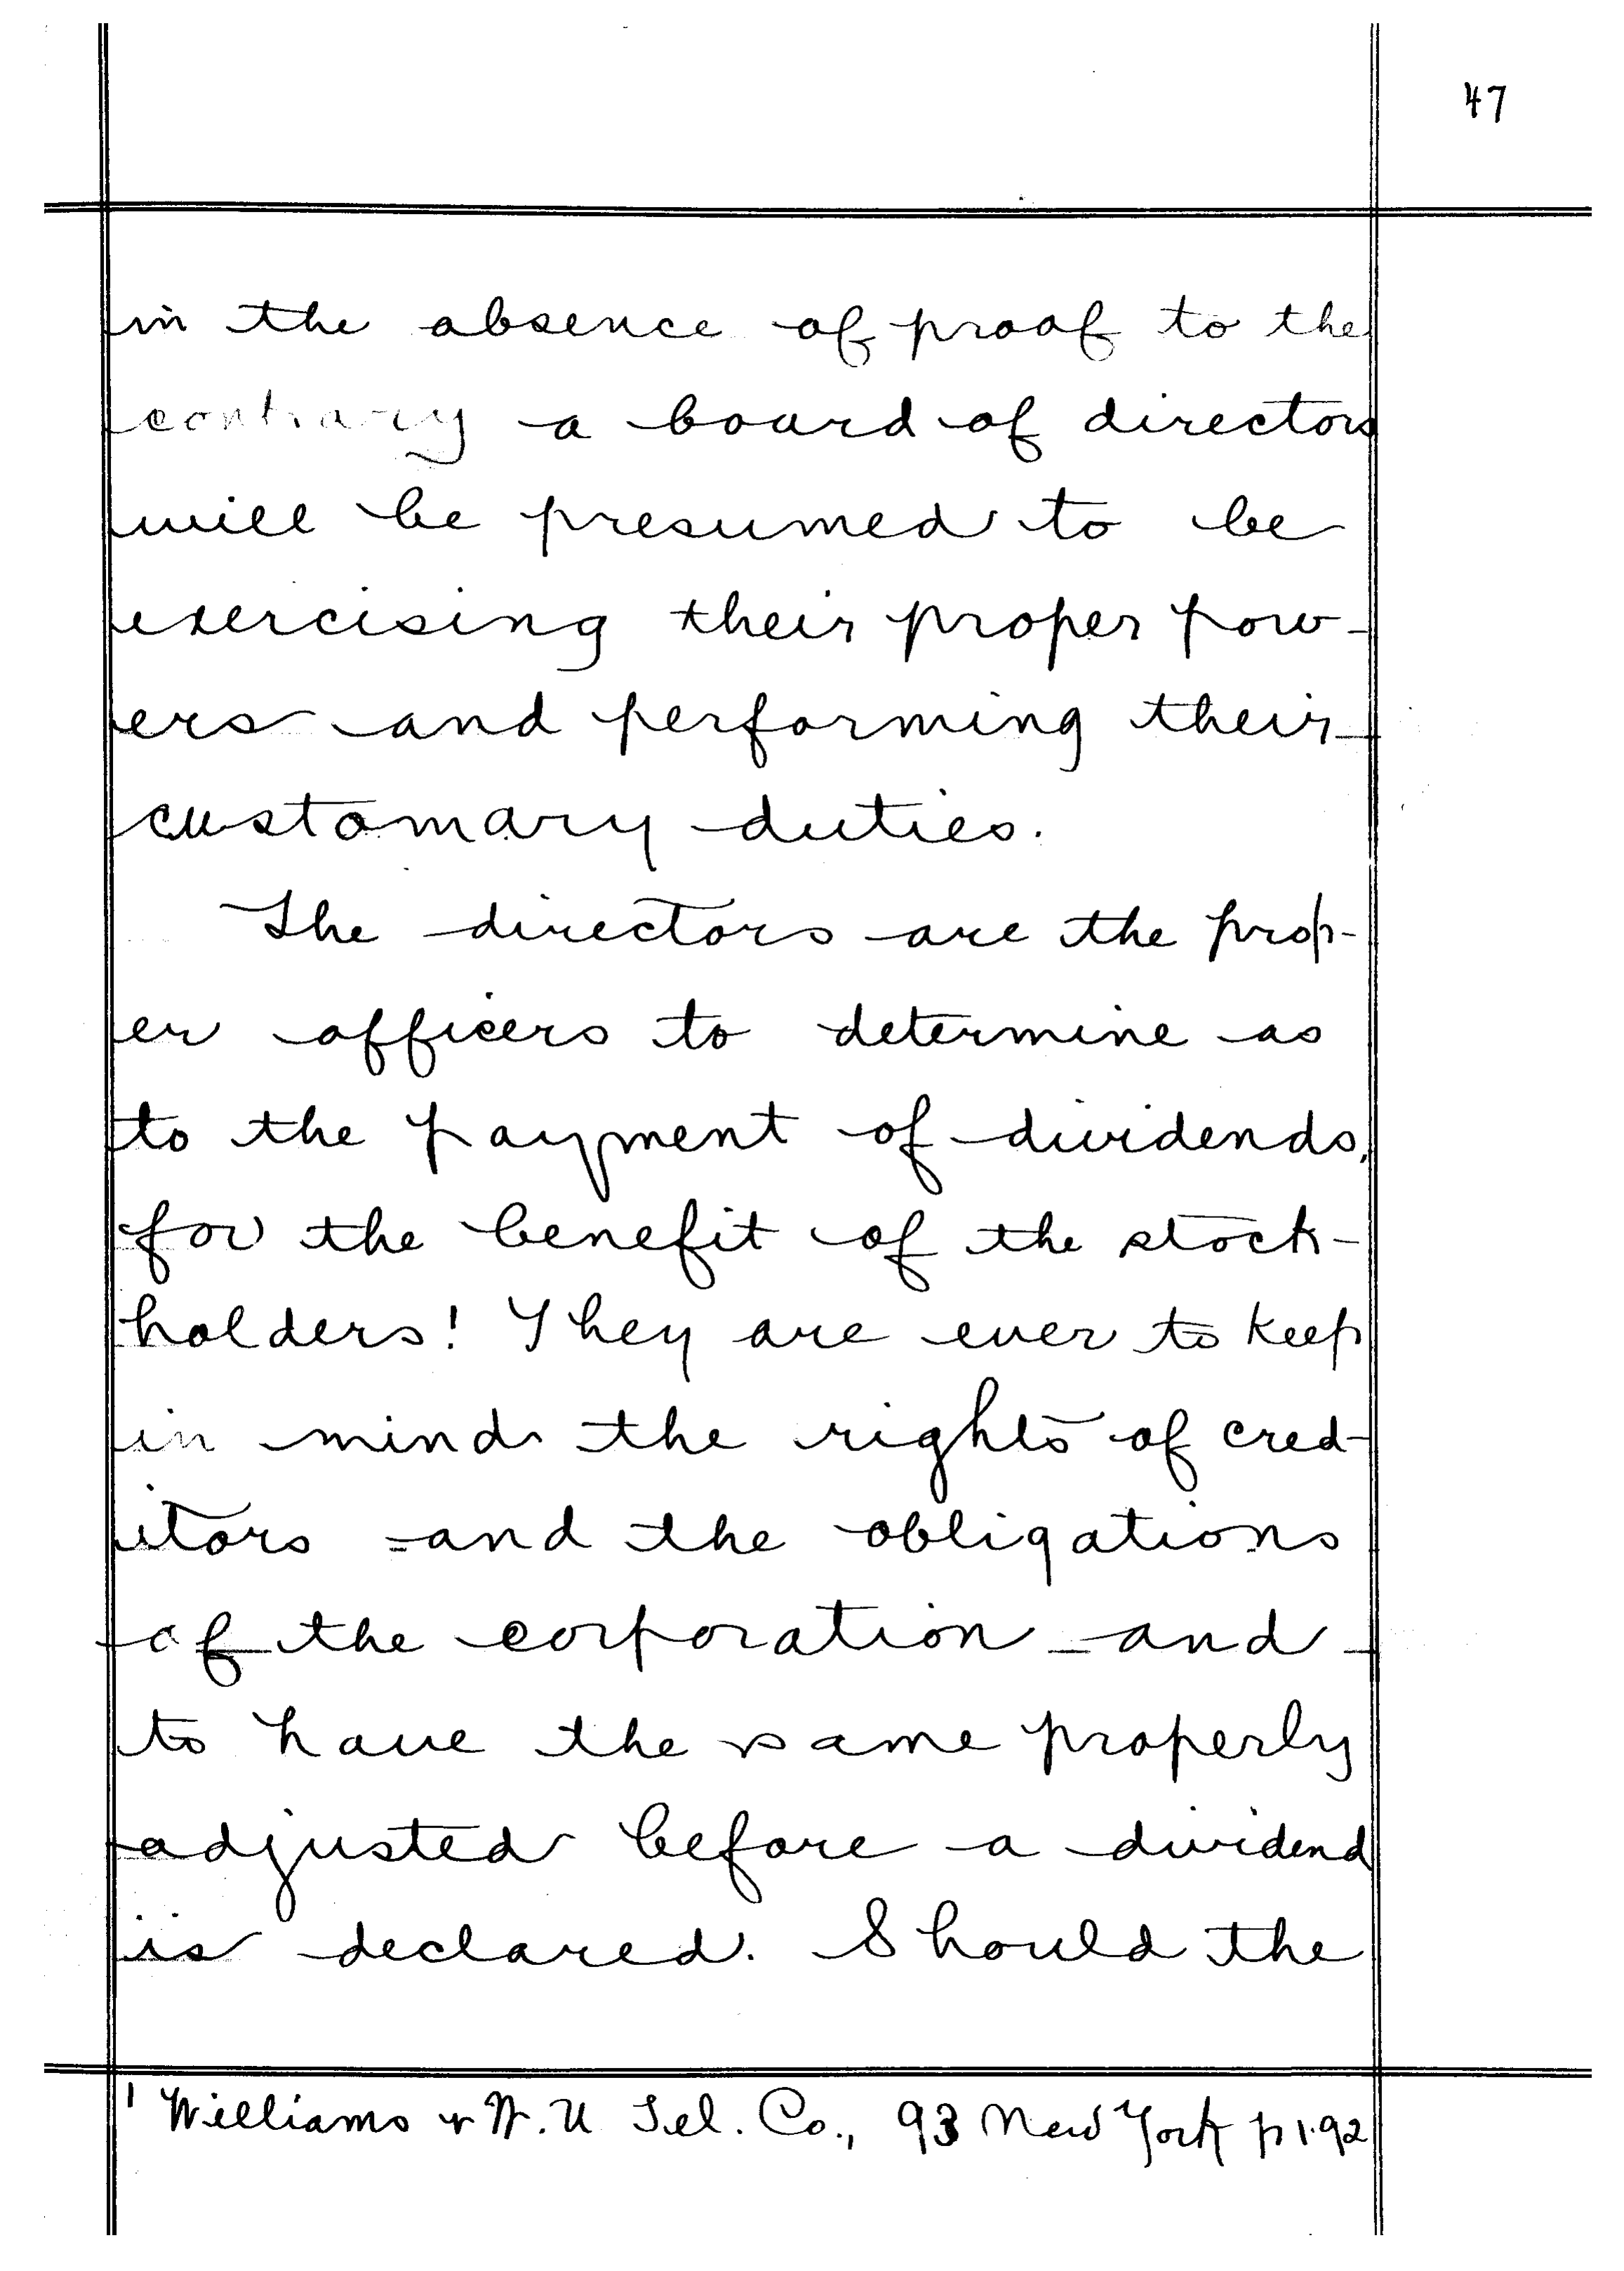 47
in the absence of proof to the
contrary a board of directors
will be presumed to be
exercising their proper pow-
ers and performing their
customary duties.
The directors are the prop-
er officers to determine as
to the payment of dividends,
for the benefit of the stock-
holders! They are ever to keep
in mind the rights of cred-
itors and the obligations
of the corporation and
to have the same properly
adjusted before a dividend
is declared. Should the
1 Williams v W. U Tel. Co., 93 New York p 192